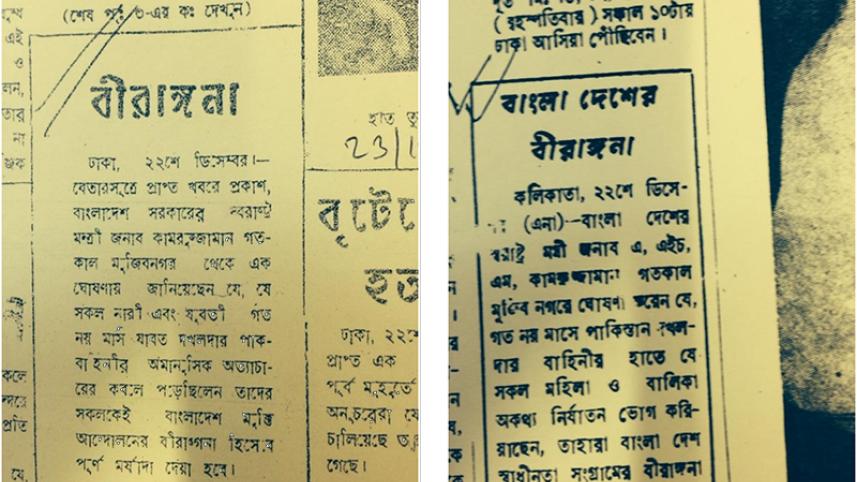 (শেষ পৃঃ ৩-এর কঃ দেখুন)
বীরাঙ্গনা
ঢাকা, ২২শে ডিসেম্বর।—
বেতারসূত্রে প্রাপ্ত খবরে প্রকাশ,
বাংলাদেশ সরকারের স্বরাষ্ট্র
মন্ত্রী জনাব কামরুজ্জামান গত-
কাল মুজিবনগর থেকে এক
ঘোষণায় জানিয়েছেন যে, যে
সকল নারী এবং যুবতী গত
নয় মাস যাবত দখলদার পাক-
বাহিনীর অমানুসিক অত্যাচা-
রের কবলে পড়েছিলেন তাদের
সকলকেই বাংলাদেশ মুক্তি
আন্দোলনের বীরাঙ্গনা হিসেবে
পূর্ণ মর্যাদা দেয়া হবে।
এই
ও
তার
না
কলে
প্রতি
যে,
হাত
23/1
বৃটে
হত
ঢাকা, ২২শে
প্রাপ্ত এক
পূর্ব মুহূর্তে
অনুচরেরা যে
চালিয়েছে
গেছে।
(বৃহস্পতিবার) সকাল ১০টায়
ঢাকা আসিয়া পৌঁছিবেন।
বাংলা দেশের
বীরাঙ্গনা
কলিকাতা, ২২শে ডিসে-
(এনা)—বাংলা দেশের
স্বরাষ্ট্র মন্ত্রী জনাব এ, এইচ,
এম, কামরুজ্জামান গতকাল
মুজিব নগরে ঘোষণা করেন যে,
গত নয় মাসে পাকিস্তান দখল-
দার বাহিনীর হাতে যে
সকল মহিলা ও বালিকা
অকথ্য নির্যাতন ভোগ করি-
য়াছেন, তাহারা বাংলা দেশ
স্বাধীনতা সংগ্রামের বীরাঙ্গনা